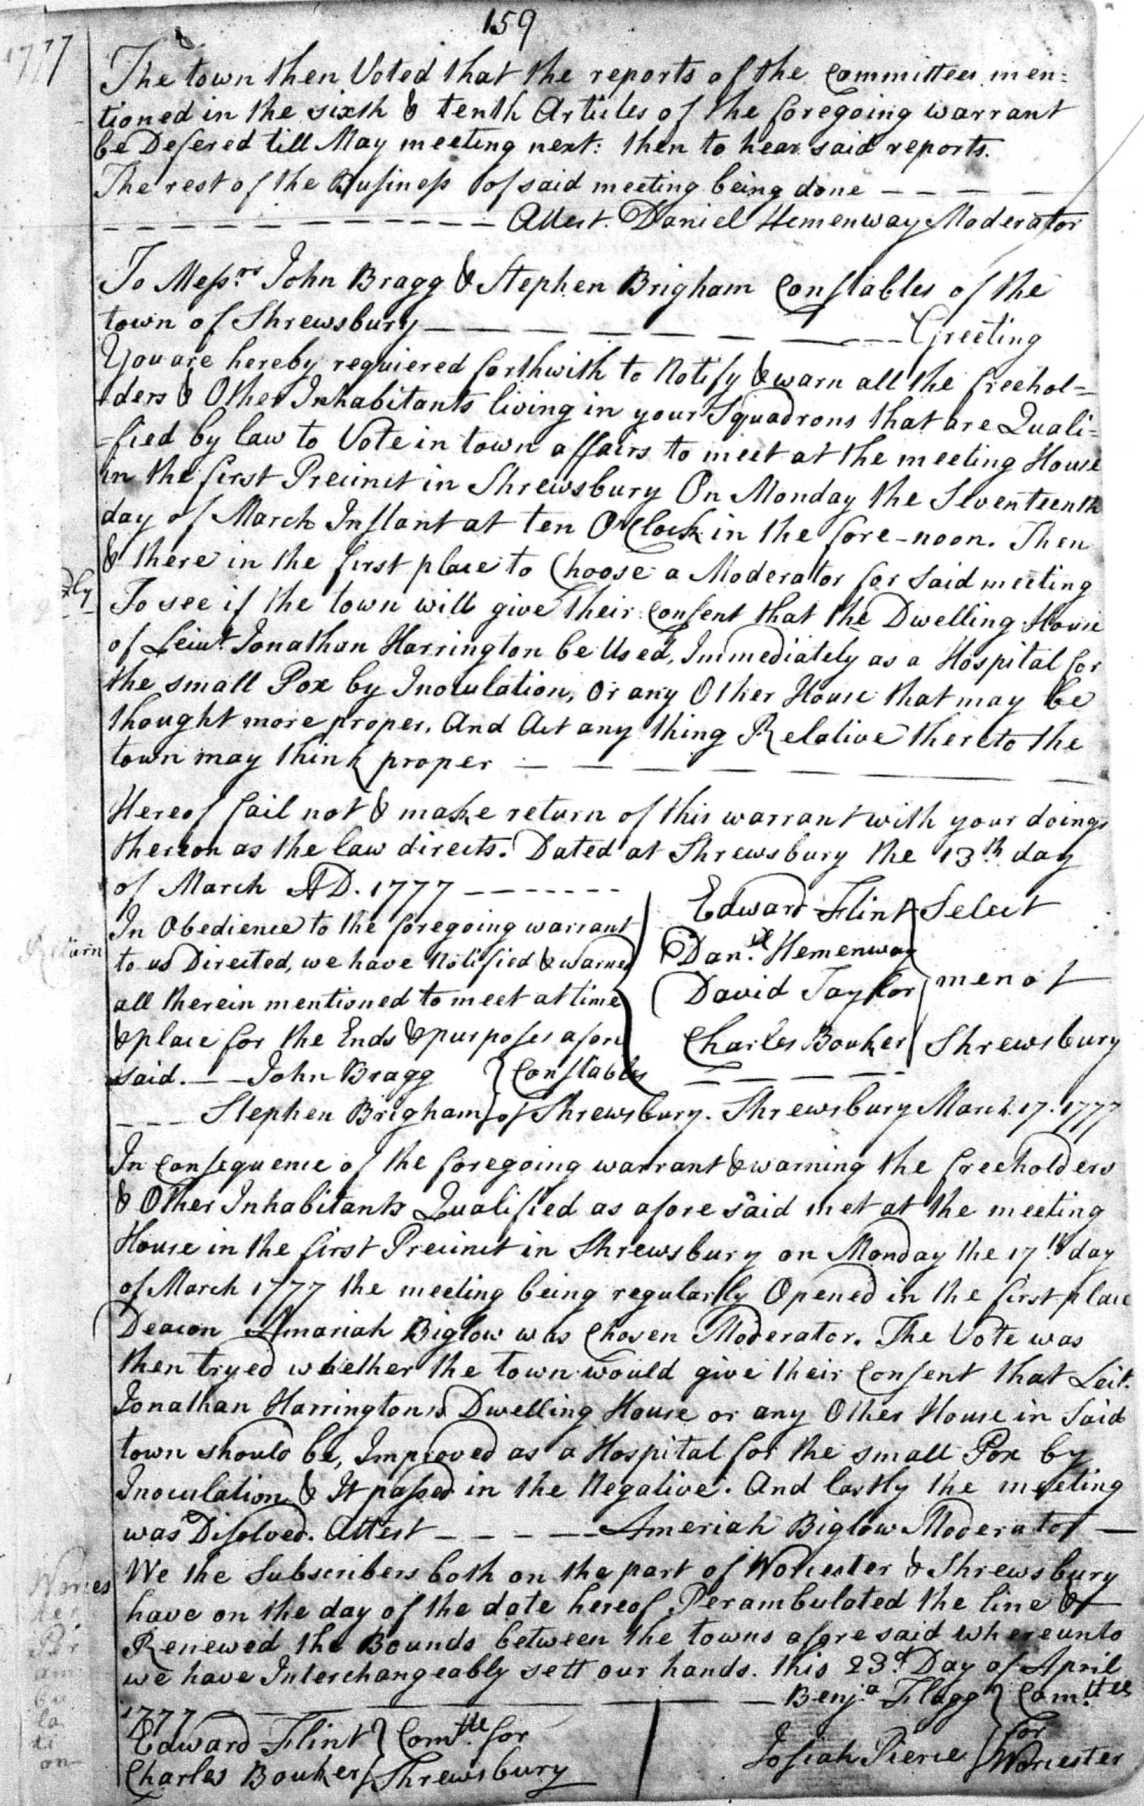 159
1777
The town then Voted that the reports of the Committees men=
tioned in the sixth & tenth Articles of the foregoing warrant
be Defered till May meeting next: then to hear said reports.
The rest of the Business of said meeting being done — — — —
— — — — — — — — — Attest. Daniel Hemenway Moderator
To Messrs John Bragg & Stephen Brigham Constables of the
town of Shrewsbury — — — — — — — — — Greeting
You are hereby requiered forthwith to Notify & warn all the freehol=
ders & Other Inhabitants living in your Squadrons that are Quali=
=fied by law to Vote in town affairs to meet at the meeting House
in the first Precinct in Shrewsbury On Monday the Seventeenth
day of March Instant at ten OClock in the fore-noon. Then
& there in the first place to Choose a Moderator for said meeting
2ly
To see if the town will give their Consent that the Dwelling House
of Leiut Jonathan Harrington be Used, Immediately as a Hospital for
the small Pox by Inoculation, Or any Other House that may be
thought more proper, And Act any thing Relative thereto the
town may think proper — — — — — — — —
Hereof fail not & make return of this warrant with your doings
thereon as the law directs. Dated at Shrewsbury the 13th day
of March AD. 1777 — — — — — — —
Edward Flint } Select
Danll Hemenway
David Taylor } men of
Charles Bouker } Shrewsbury
Return
In Obedience to the foregoing warrant
to us Directed, we have Notified & warned
all therein mentioned to meet at time
& place for the Ends & purposes afore
said. — — John Bragg } Constables
— — — Stephen Brigham } of Shrewsbury. Shrewsbury March 17. 1777
In Consequence of the foregoing warrant & warning the freeholders
& Other Inhabitants Qualified as afore said met at the meeting
House in the first Precinct in Shrewsbury on Monday the 17th day
of March 1777 the meeting being regularly Opened in the first place
Deacon Amariah Biglow was Chosen Moderator. The Vote was
then tryed whether the town would give their Consent that Leit.
Jonathan Harringtons Dwelling House or any Other House in Said
town should be, Improved as a Hospital for the small Pox by
Inoculation & It passed in the Negative. And lastly the meeting
was Disolved. Attest — — — — — Ameriah Biglow Moderator —
Worces
ter
Per
am
bu
la
ti
on
We the Subscribers both on the part of Worcester & Shrewsbury
have on the day of the date hereof Perambulated the line &
Renewed the Bounds between the towns afore said whereunto
we have Interchangeably sett our hands. this 23d Day of April
1777 — — — — — — — — — Benja Flagg } Comttee
Edward Flint } Comtte for
Josiah Pierce } for Worcester
Charles Bouker } Shrewsbury